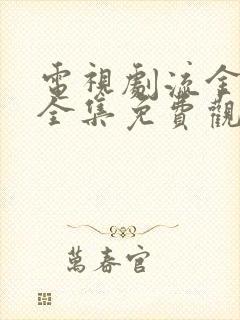 電視劇流金
全集免費觀
萬春官